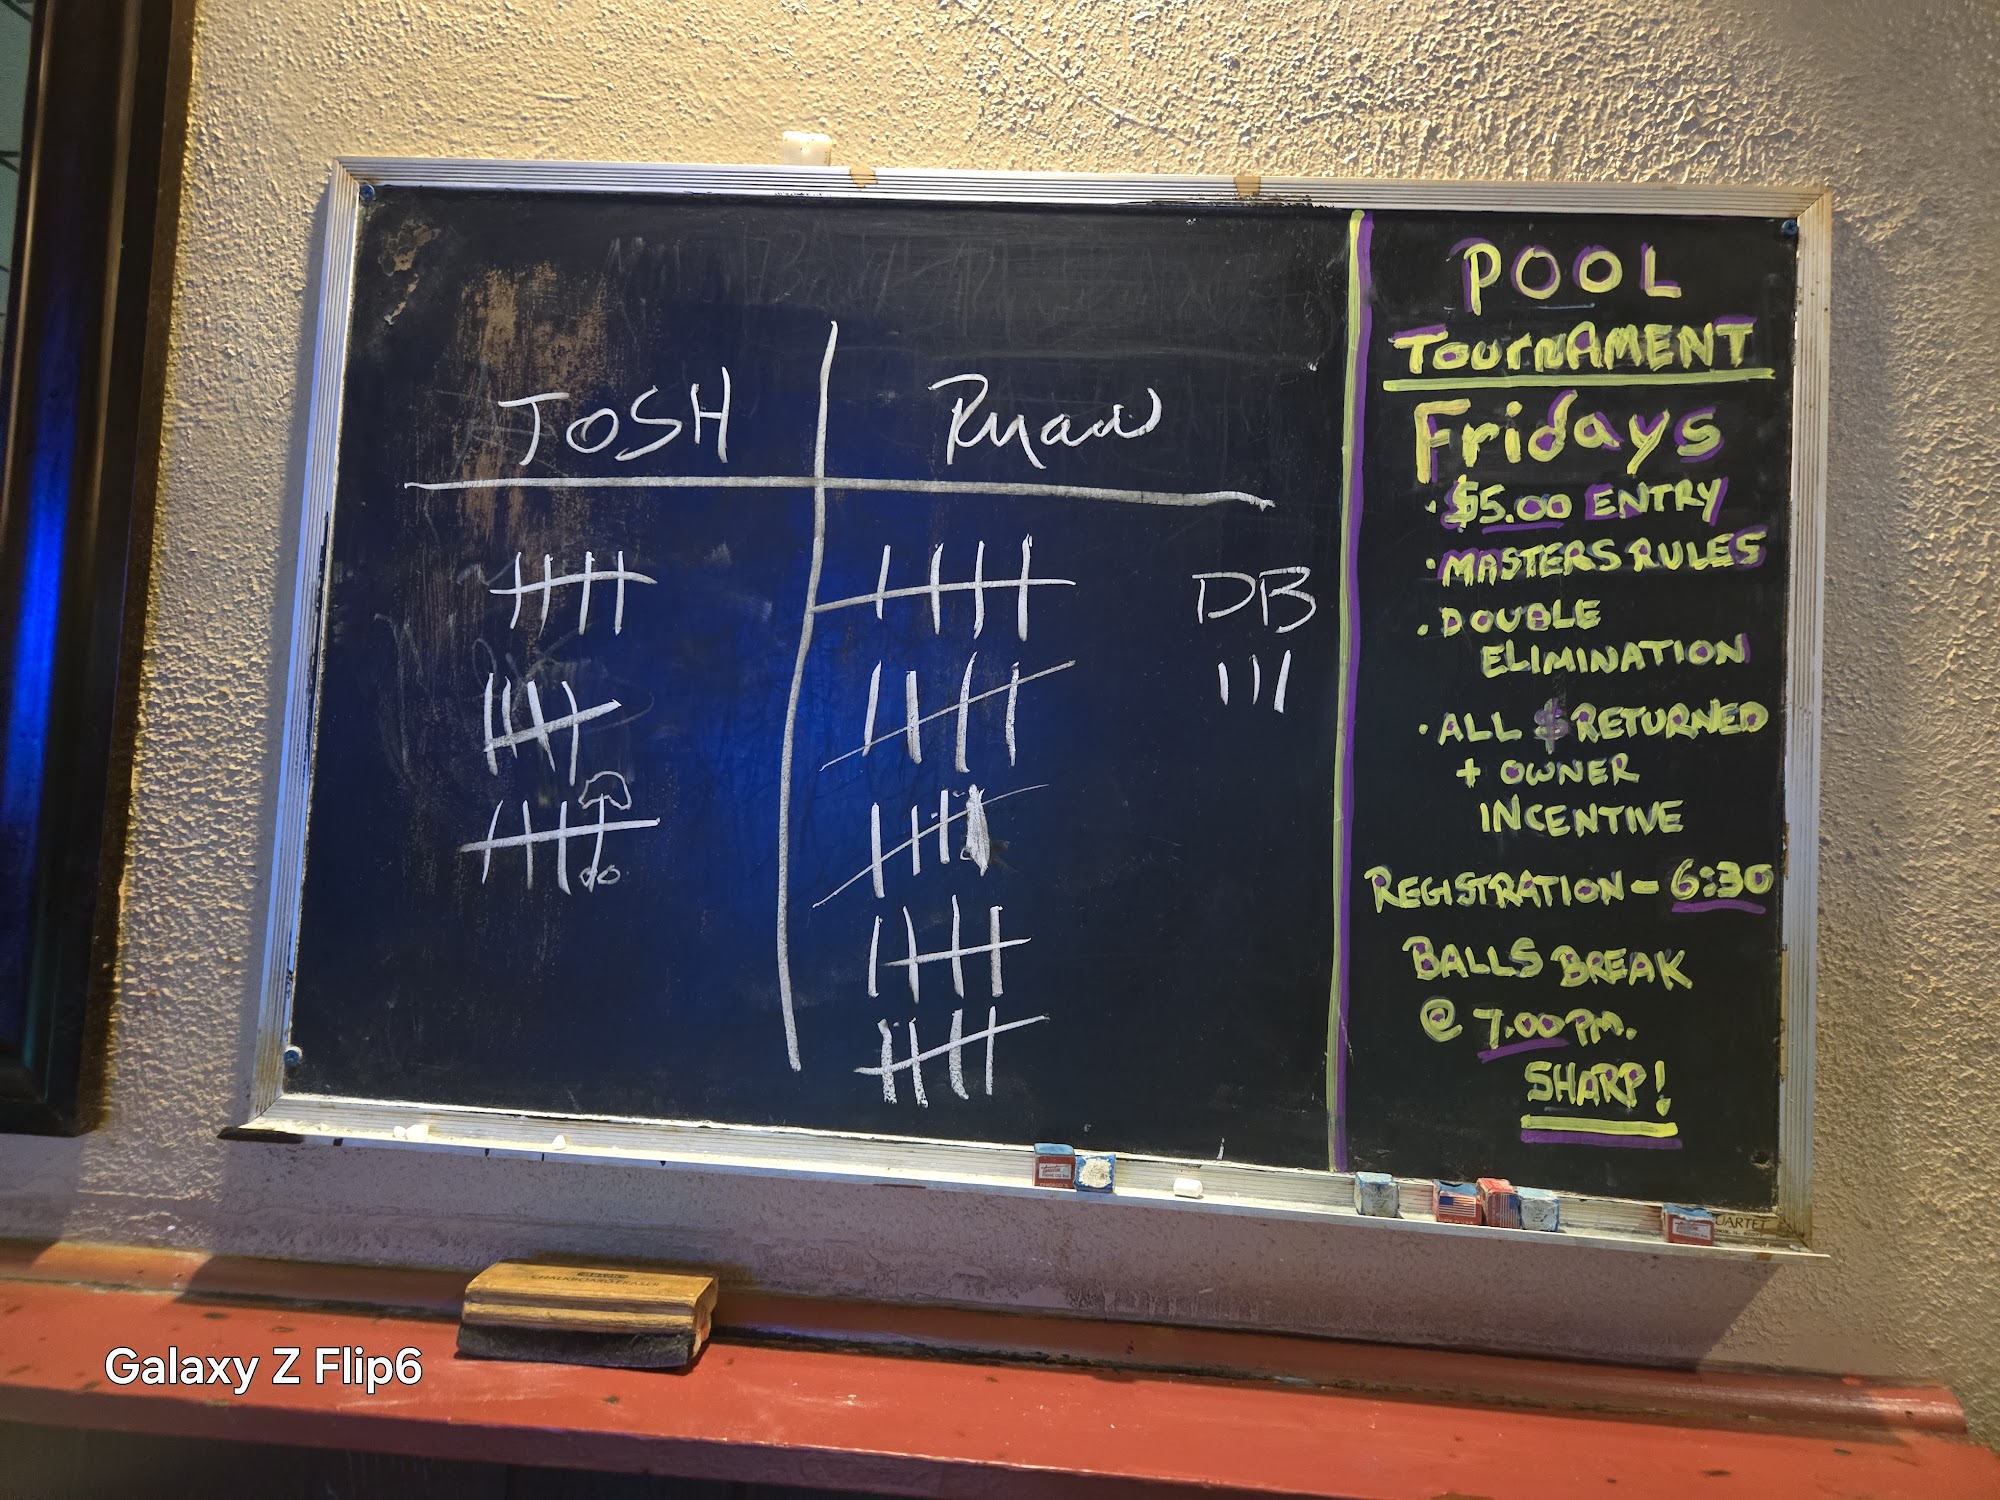 JOSH
Ryan
DB
III
POOL
TOURNAMENT
Fridays
· $5.00 ENTRY
· MASTERS RULES
· DOUBLE
ELIMINATION
· ALL $ RETURNED
+ OWNER
INCENTIVE
REGISTRATION - 6:30
BALLS BREAK
@ 7.00 PM.
SHARP!
CHALKBOARD ERASER
Galaxy Z Flip6